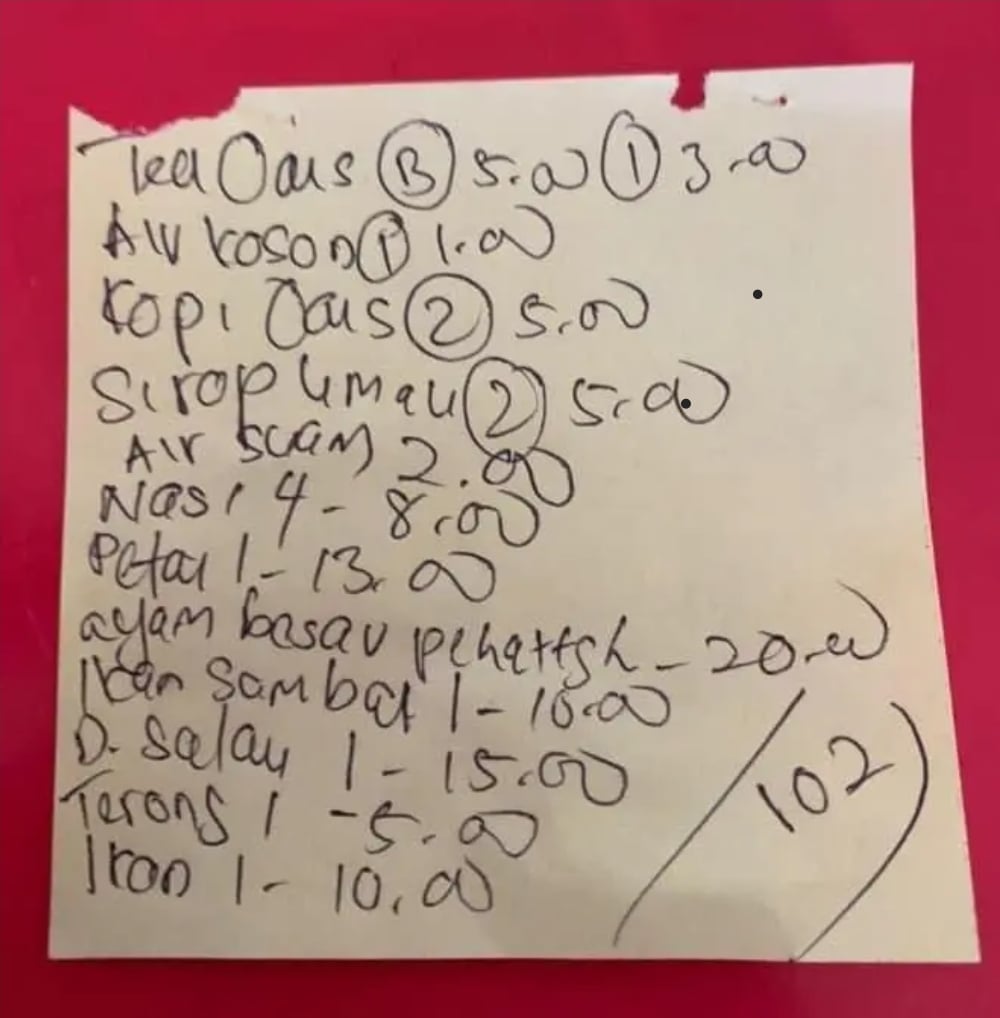 Tea Oais B 5.00 1 3.00
Air koson 1 1.00
Kopi Oais 2 5.00
Sirop limau 2 5.00
Air suam 2.00
Nasi 4 - 8.00
Petai 1 - 13.00
ayam besar - 20.00
Ikan Sambal 1 - 10.00
D. Salay 1 - 15.00
Terong 1 - 5.00
Ikan 1 - 10.00
102